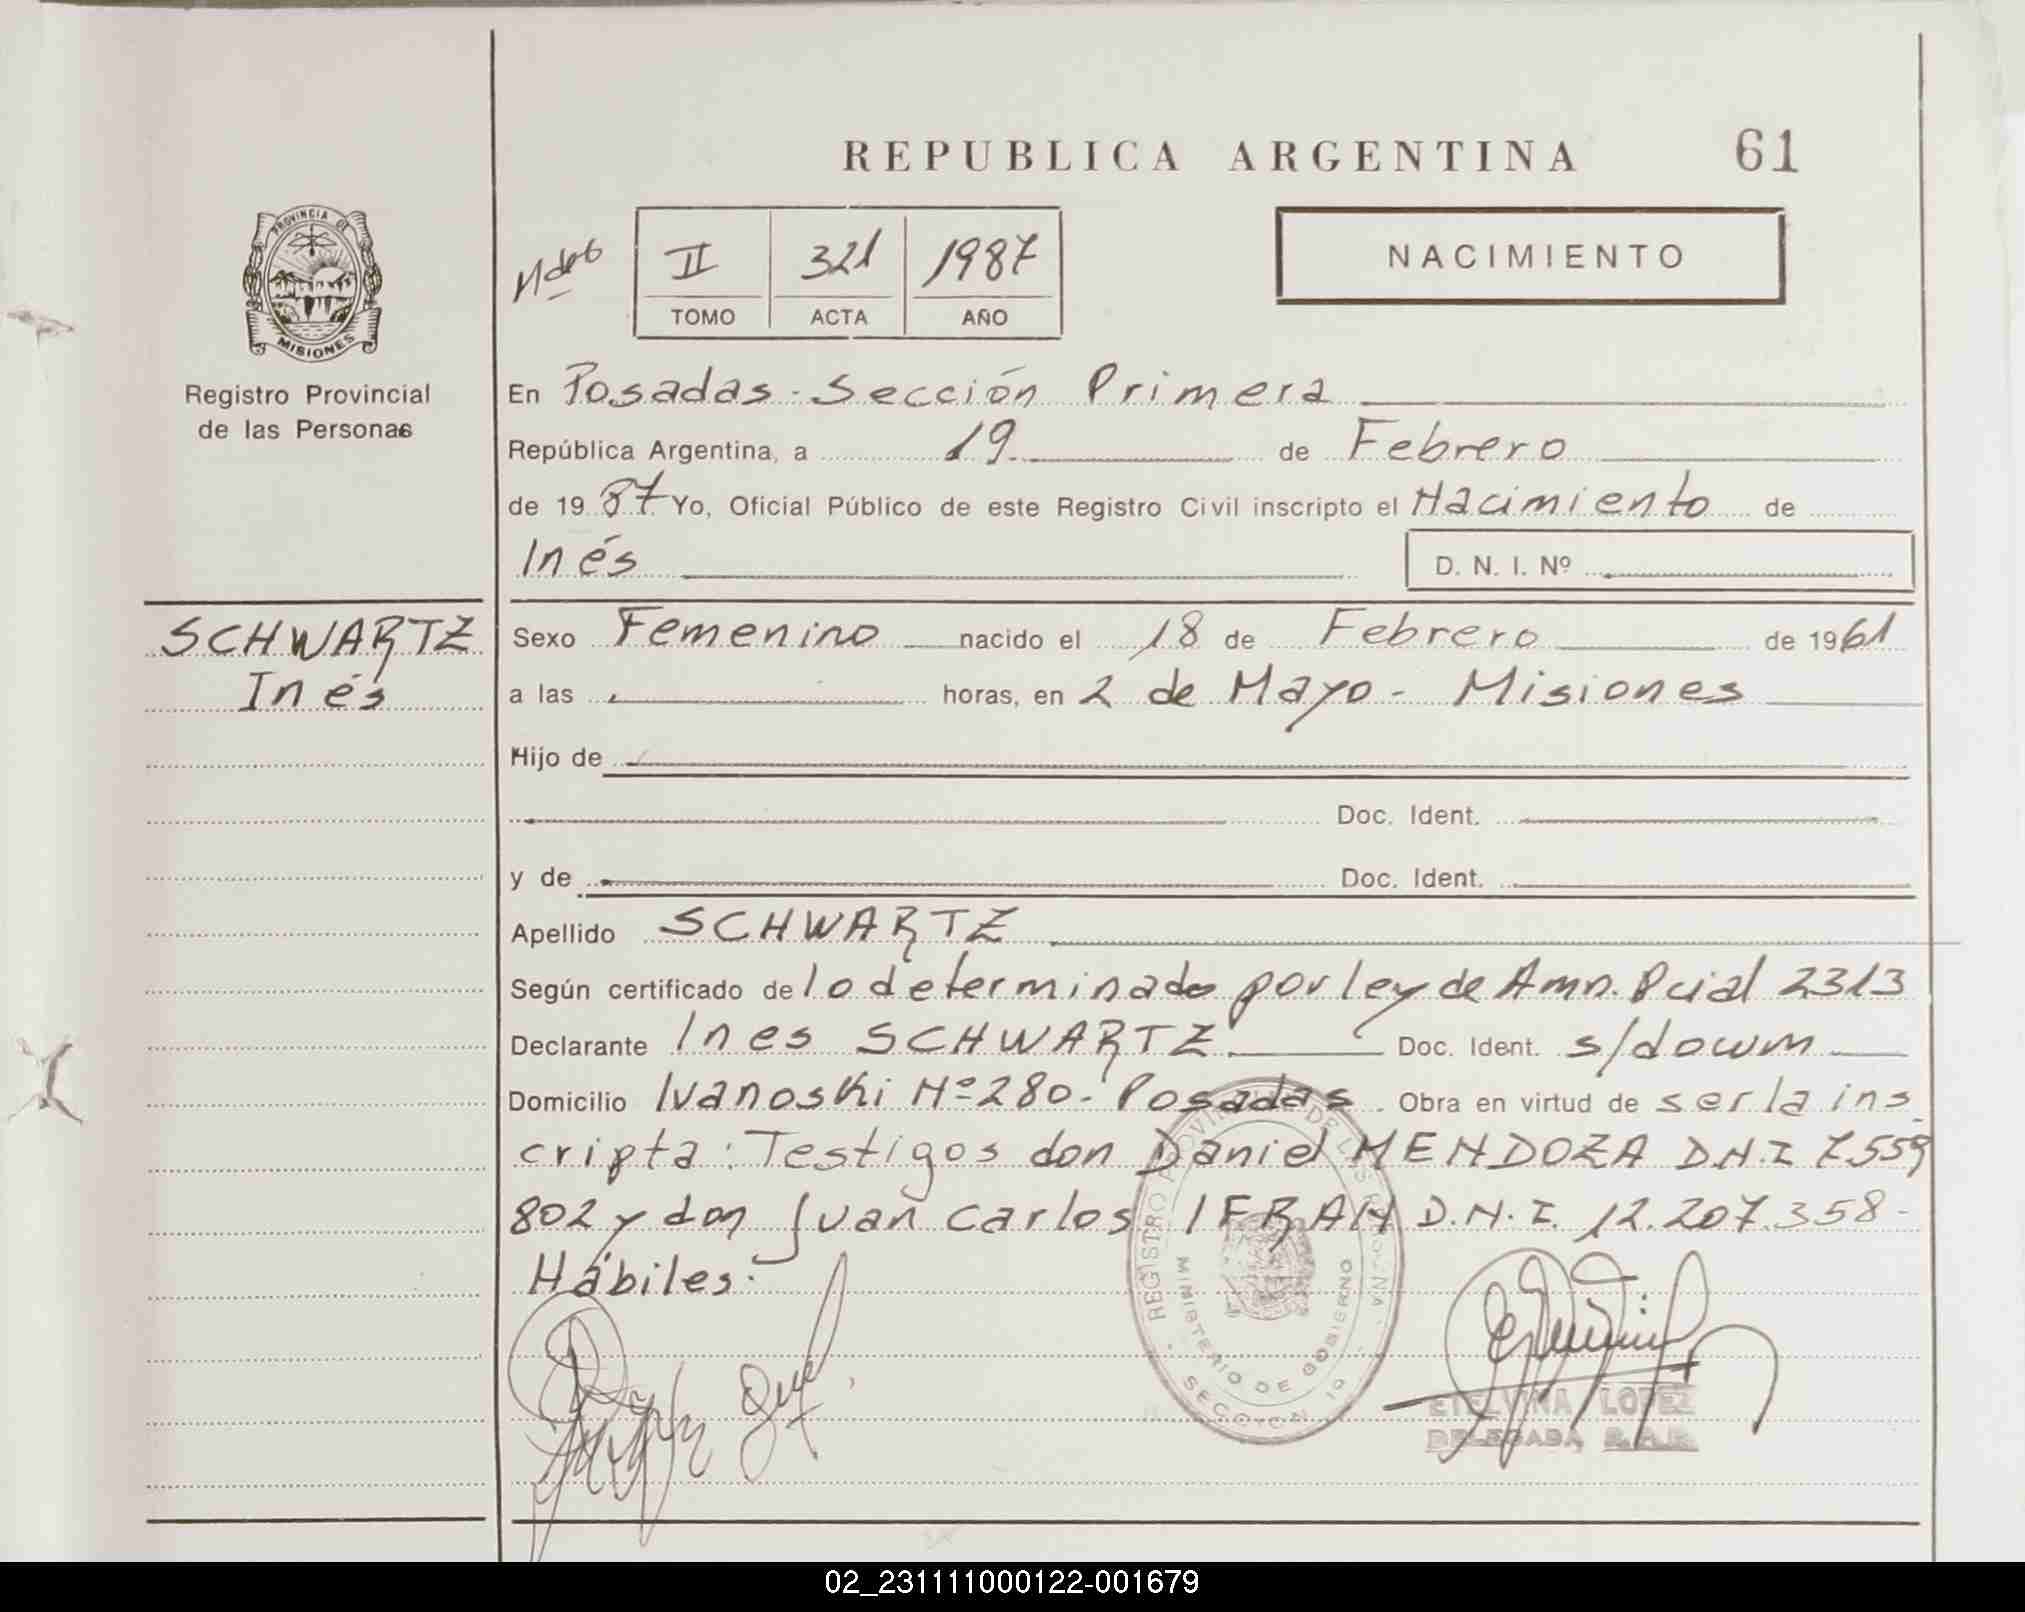 REPUBLICA ARGENTINA 61
II 321 1987
TOMO ACTA AÑO
NACIMIENTO
PROVINCIA DE
MISIONES
Registro Provincial
de las Personas
SCHWARTZ
Inés
En Posadas - Sección Primera
República Argentina, a 19 de Febrero
de 1987 Yo, Oficial Público de este Registro Civil inscripto el Nacimiento de
Inés D. N. I. Nº
Sexo Femenino nacido el 18 de Febrero de 1961
a las horas, en 2 de Mayo - Misiones
Hijo de
Doc. Ident.
y de Doc. Ident.
Apellido SCHWARTZ
Según certificado de lo determinado por ley de Amn. Pcial 2313
Declarante Ines SCHWARTZ Doc. Ident. s/docum
Domicilio Ivanoski Nº 280 - Posadas. Obra en virtud de ser la ins
cripta: Testigos don Daniel MENDOZA D.N.I 7.559
802 y don Juan Carlos IFRAN D.N.I. 12.207.358-
Hábiles.
MINISTERIO DE GOBIERNO
SECCION 1º
ETELVINA LOPEZ
DELEGADA
02_231111000122-001679